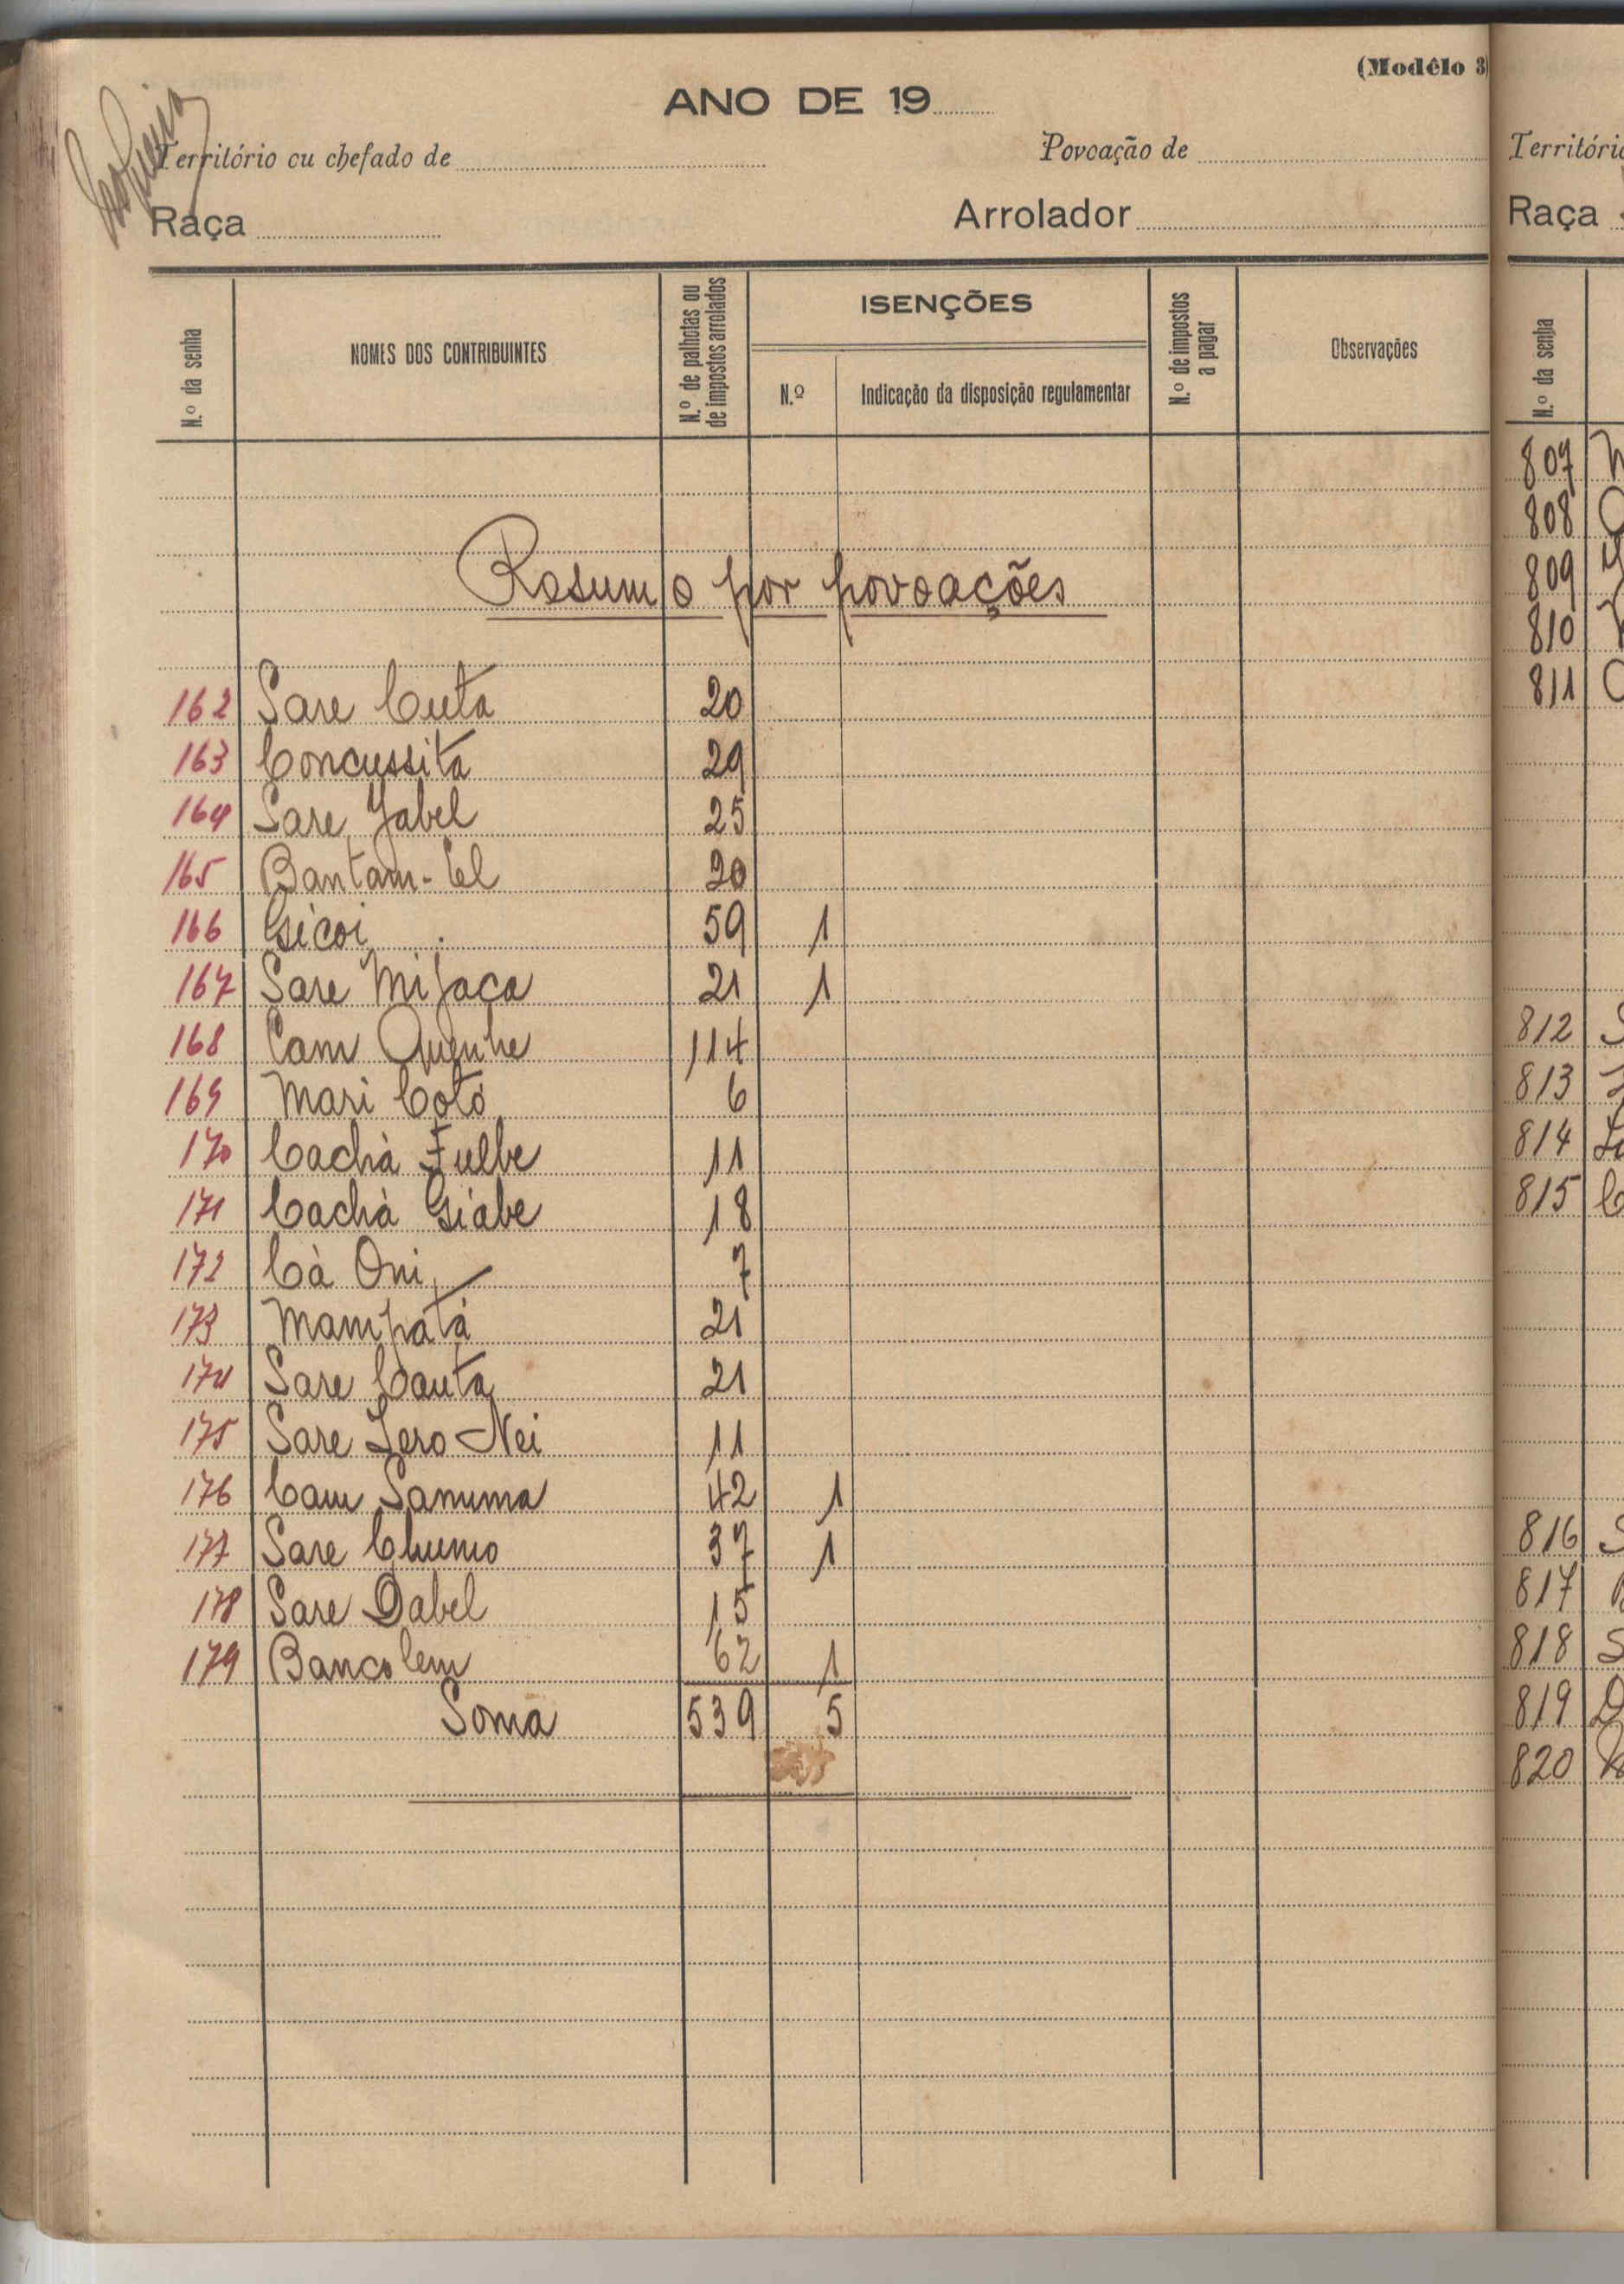 (Modêlo 3)
ANO DE 19
Território ou chefado de Povoação de
Raça Arrolador
N.º da senha
NOMES DOS CONTRIBUINTES
N.º de palhotas ou de impostos arrolados
ISENÇÕES
N.º
Indicação da disposição regulamentar
N.º de impostos a pagar
Observações
Resumo por povoações
162 Sare Cuta 20
163 Concussita 29
164 Sare Yabel 25
165 Bantam-Cel 20
166 Gicoi 59 1
167 Sare Mifaca 21 1
168 Cam Quenhe 114
169 Mari Cotó 6
170 Cachà Fulbe 11
171 Cachà Giabe 18
172 Cà Oni 7
173 Mampatá 21
174 Sare Cauta 21
175 Sare Iero Nei 11
176 Cam Sanuma 42 1
177 Sare Chumo 37 1
178 Sare Dabel 15
179 Bancolem 62 1
Soma 539 5
Território
Raça
N.º da senha
807
808
809
810
811
812
813
814
815
816
817
818
819
820